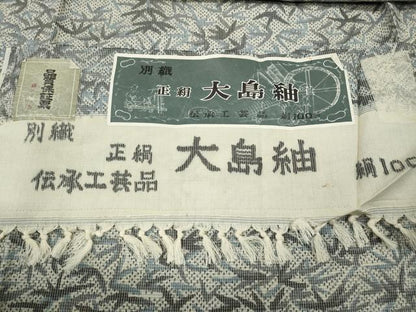 別織
正絹 大島紬
伝承工芸品 絹100%
別織
正絹 大島紬
伝承工芸品
絹100